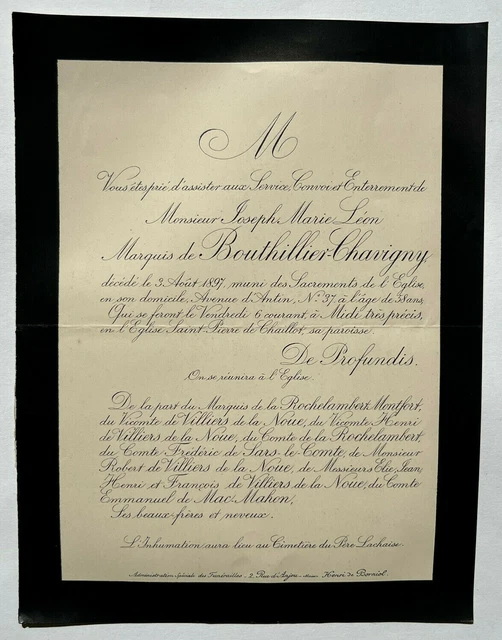 M
Vous êtes prié d'assister aux Service, Convoi et Enterrement de
Monsieur Joseph Marie Léon
Marquis de Bouthillier-Chavigny
décédé le 3 Août 1897, muni des Sacrements de l'Eglise,
en son domicile, Avenue d'Antin, No 37, à l'âge de 58 ans,
Qui se feront le Vendredi 6 courant, à Midi très précis,
en l'Eglise Saint-Pierre de Chaillot, sa paroisse.
De Profundis.
On se réunira à l'Eglise.
De la part du Marquis de la Rochelambert Montfort,
du Vicomte de Villiers de la Noüe, du Vicomte Henri
de Villiers de la Noüe, du Comte de la Rochelambert,
du Comte Fréderic de Sars-le-Comte, de Monsieur
Robert de Villiers de la Noüe, de Messieurs Elie, Jean,
Henri et François de Villiers de la Noüe, du Comte
Emmanuel de Mac Mahon,
Ses beaux-frères et neveux.
L'Inhumation aura lieu au Cimetière du Père Lachaise.
Administration Spéciale des Funérailles, 2, Rue d'Anjou. Henri de Borniol.